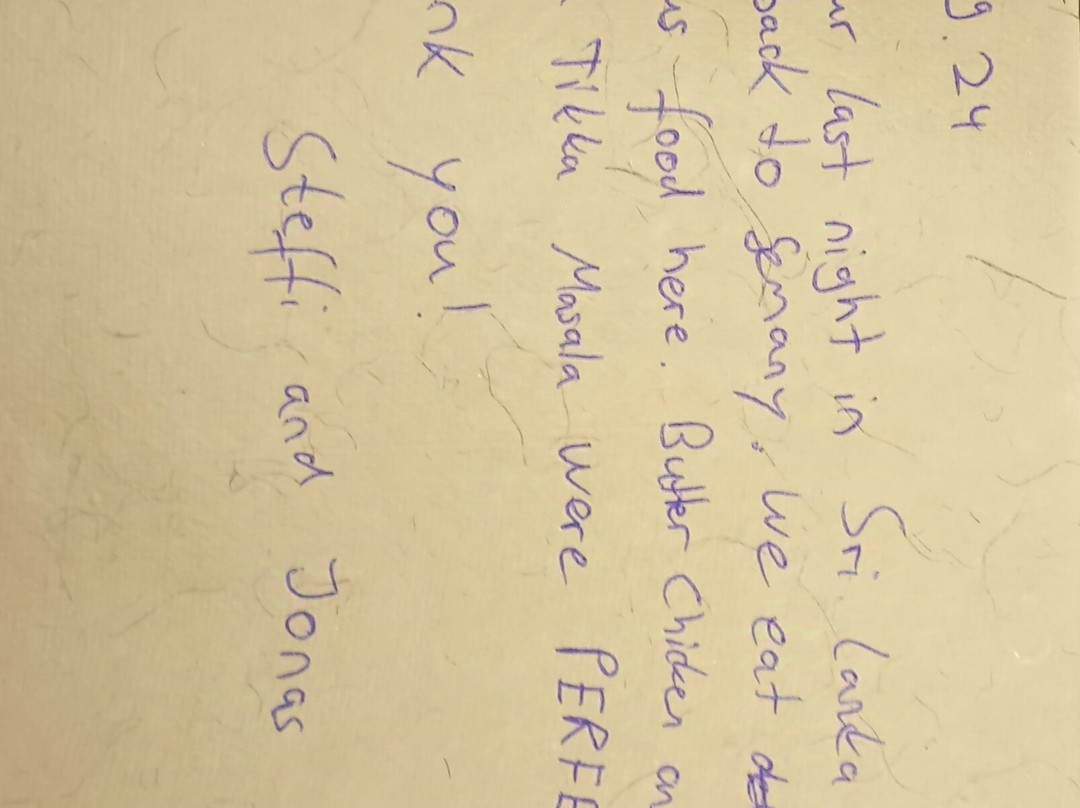 9.24
ur last night in Sri Lanka
back to Germany. We eat
us food here. Butter Chicken an
Tikka Masala were PERFE
nk you!
Steffi and Jonas